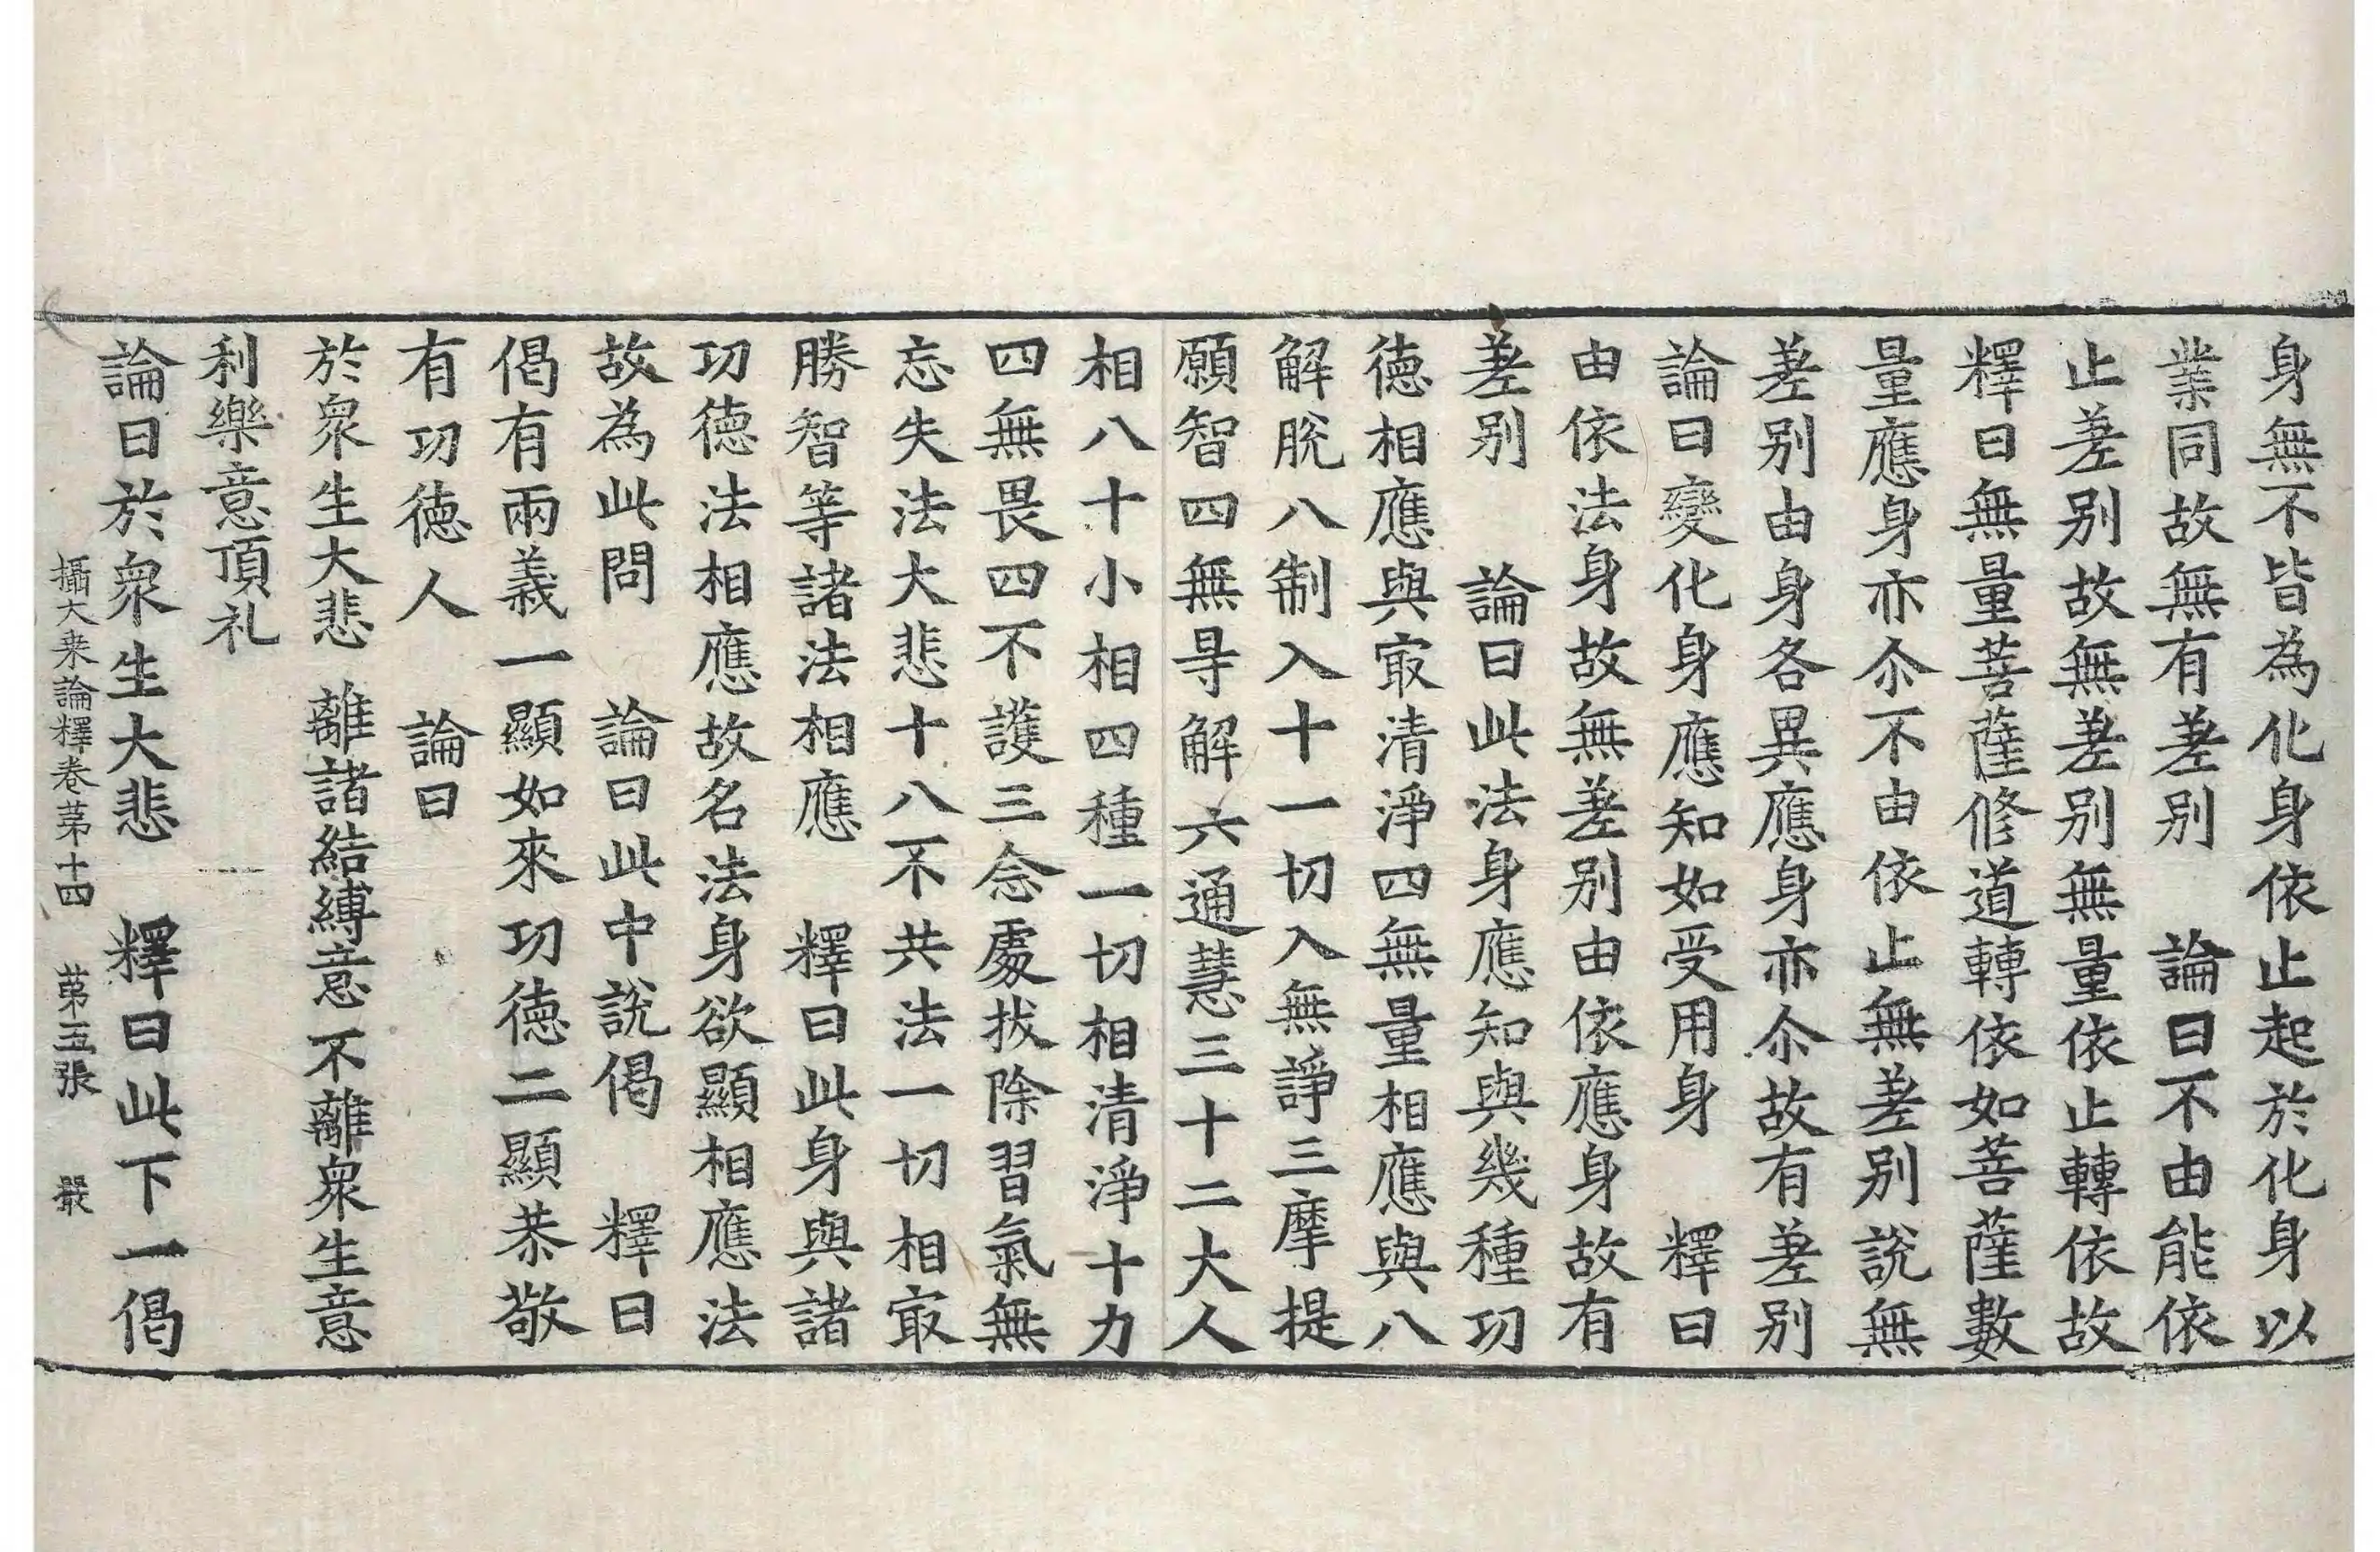 身無不皆為化身依止起於化身以
業同故無有差別　論曰不由能依
止差別故無差別無量依止轉依故
釋曰無量菩薩修道轉依如菩薩數
量應身亦尒不由依止無差別說無
差別由身各異應身亦尒故有差別
論曰變化身應知如受用身　釋曰
由依法身故無差別由依應身故有
差別　論曰此法身應知與幾種功
德相應與㝡清淨四無量相應與八
解脫八制入十一切入無諍三摩提
願智四無㝵解六通慧三十二大人
相八十小相四種一切相清淨十力
四無畏四不護三念處拔除習氣無
忘失法大悲十八不共法一切相㝡
勝智等諸法相應　釋曰此身與諸
功德法相應故名法身欲顯相應法
故為此問　論曰此中說偈　釋曰
偈有兩義一顯如來功德二顯恭敬
有功德人　論曰
於衆生大悲　離諸結縛意　不離衆生意
利樂意頂礼
論曰於衆生大悲　釋曰此下一偈
攝大乗論釋卷苐十四　苐五張　嚴